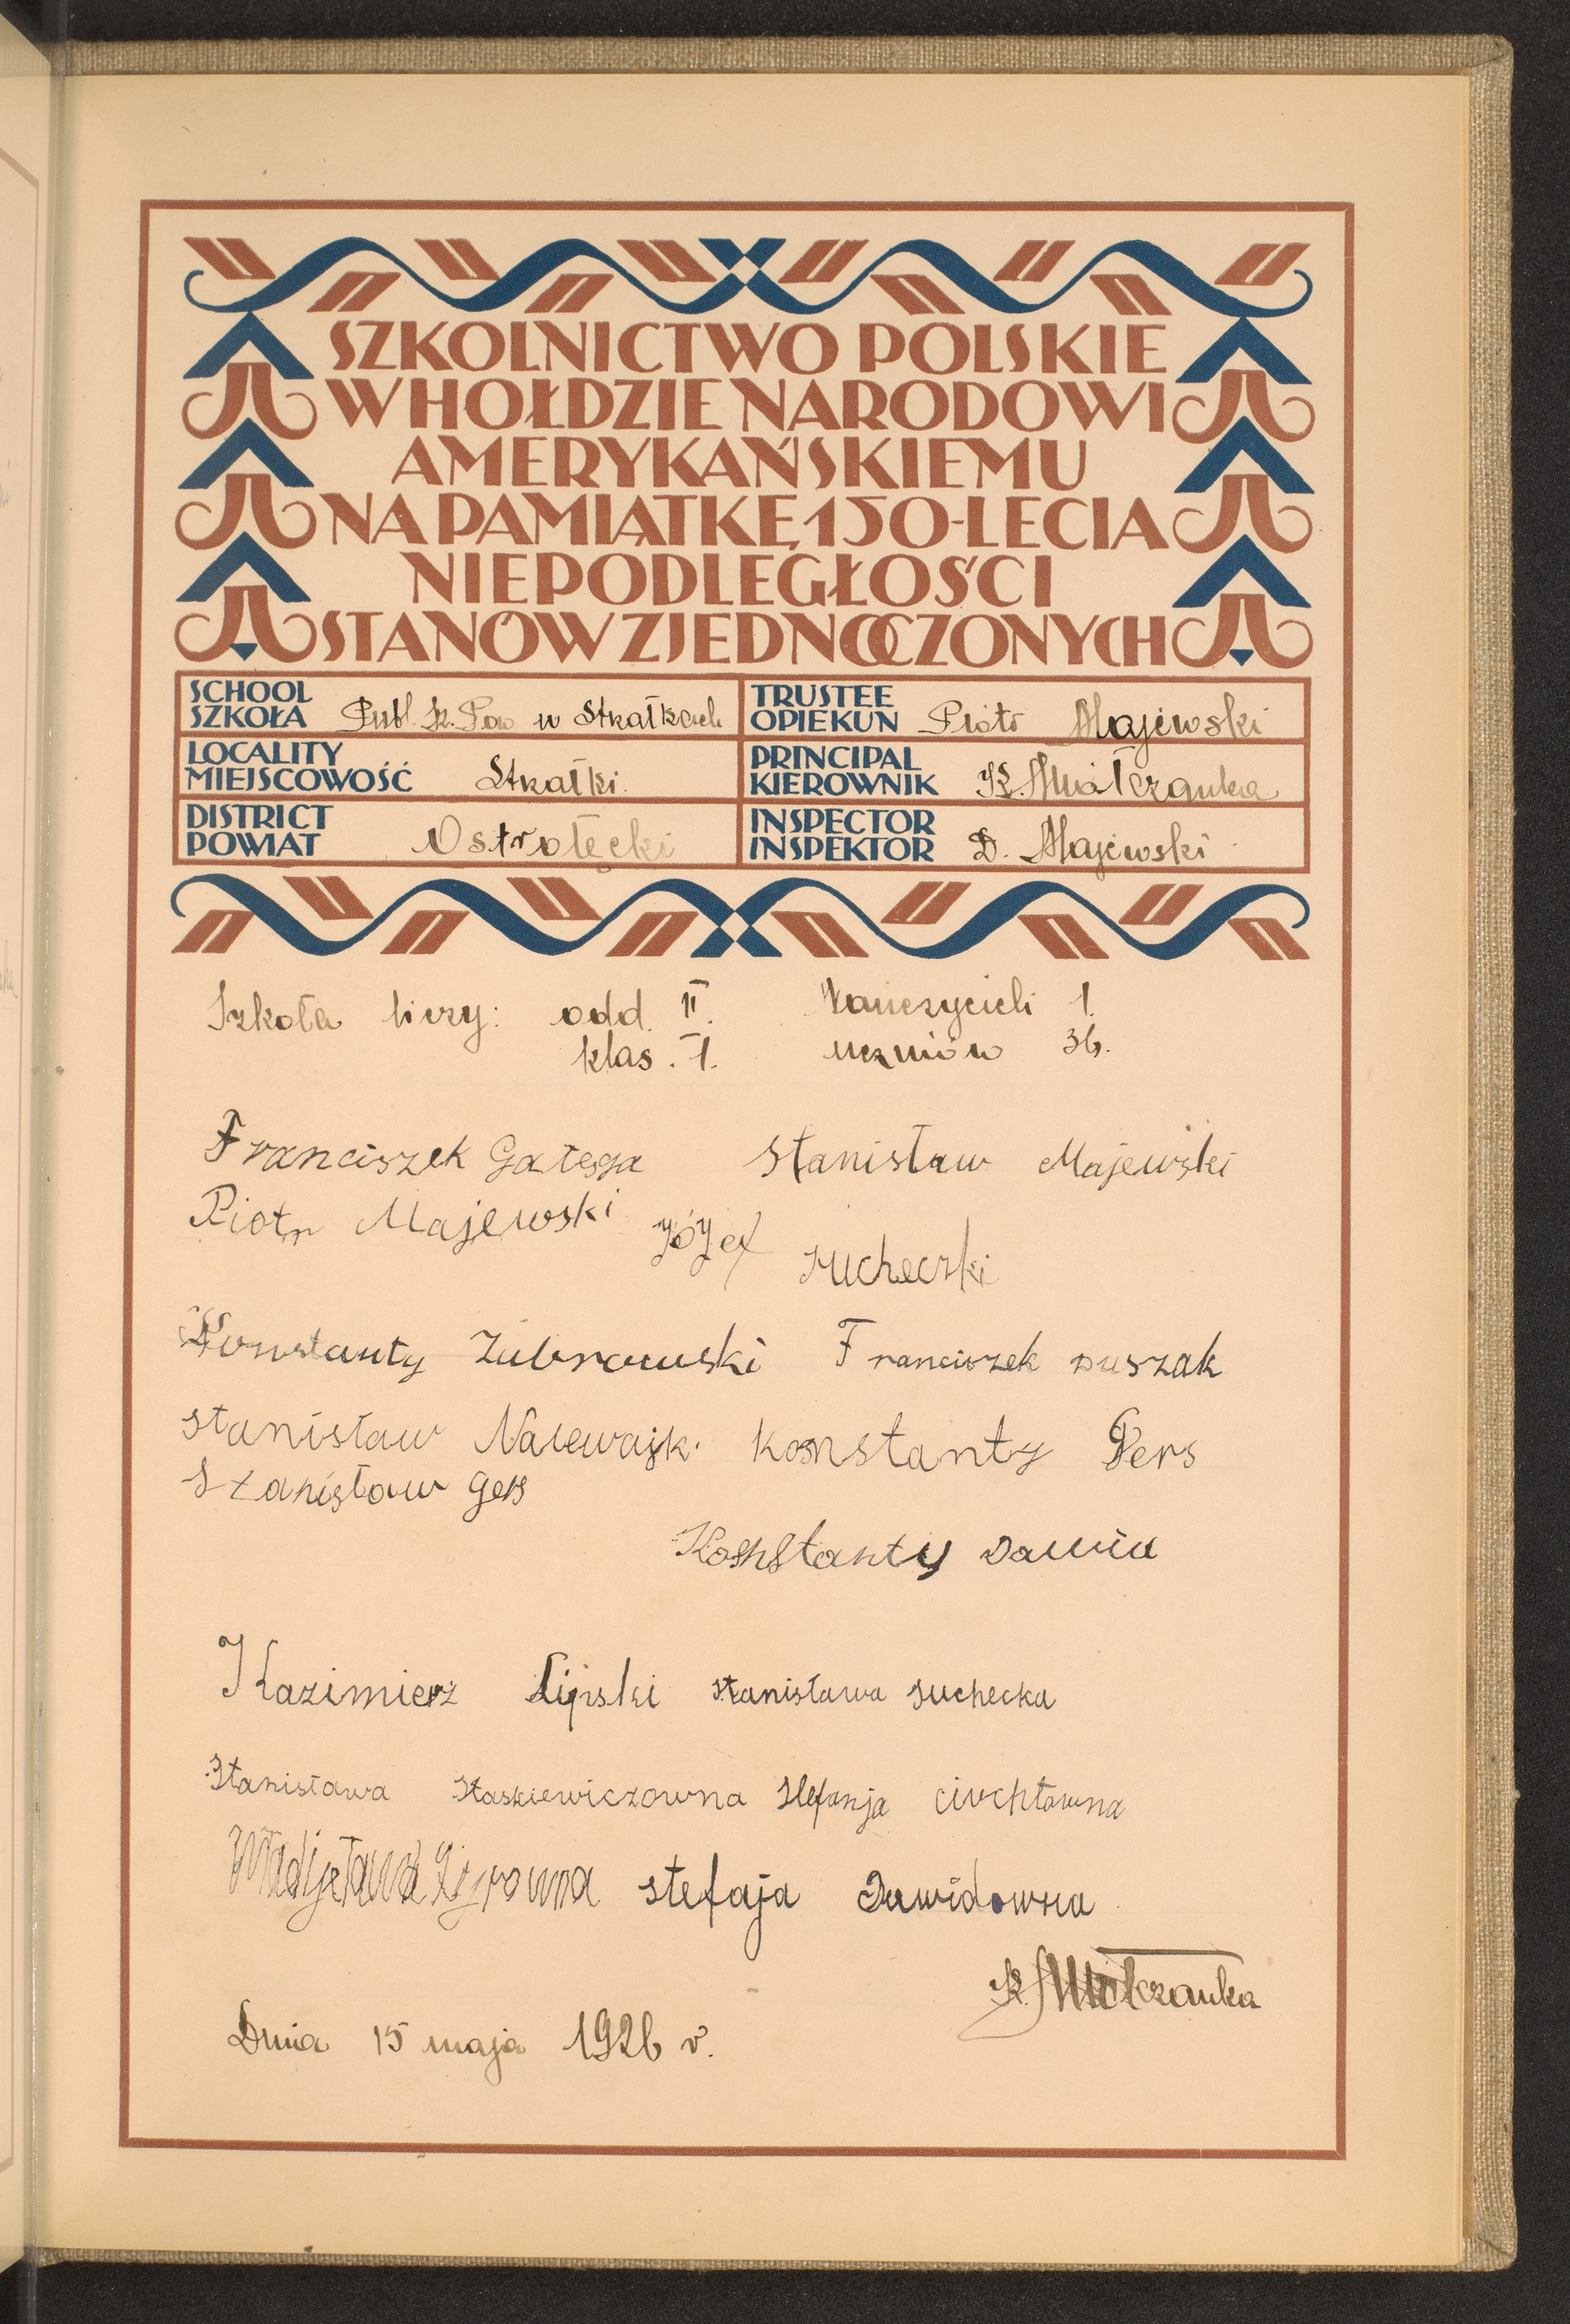 SZKOLNICTWO POLSKIE
W HOŁDZIE NARODOWI
AMERYKAŃSKIEMU
NA PAMIĄTKĘ 150-LECIA
NIEPODLEGŁOŚCI
STANÓW ZJEDNOCZONYCH
SCHOOL
SZKOŁA Publ. Sz. Pow w Strałkach
TRUSTEE
OPIEKUN Piotr Majewski
LOCALITY
MIEJSCOWOŚĆ Strałki.
PRINCIPAL
KIEROWNIK
DISTRICT
POWIAT Ostrołęcki
INSPECTOR
INSPEKTOR D. Majewski
Szkoła liczy: odd. II. Nauczycieli 1.
klas. I. uczniów 36.
Franciszek Gałęga Stanisław Majewski
Piotr Majewski Józef Suchecski
Konstanty Zubrowski Franciszek Duszak
Stanisław Nalewajk. Konstanty Pers
Stanisław Gers
Konstanty Dawid
Kazimierz Lipski Stanisława Suchecka
Stanisława Staskiewiczowna Stefanja Ciuchtowna
stefaja Dawidowna
Dnia 15 maja 1926 r.